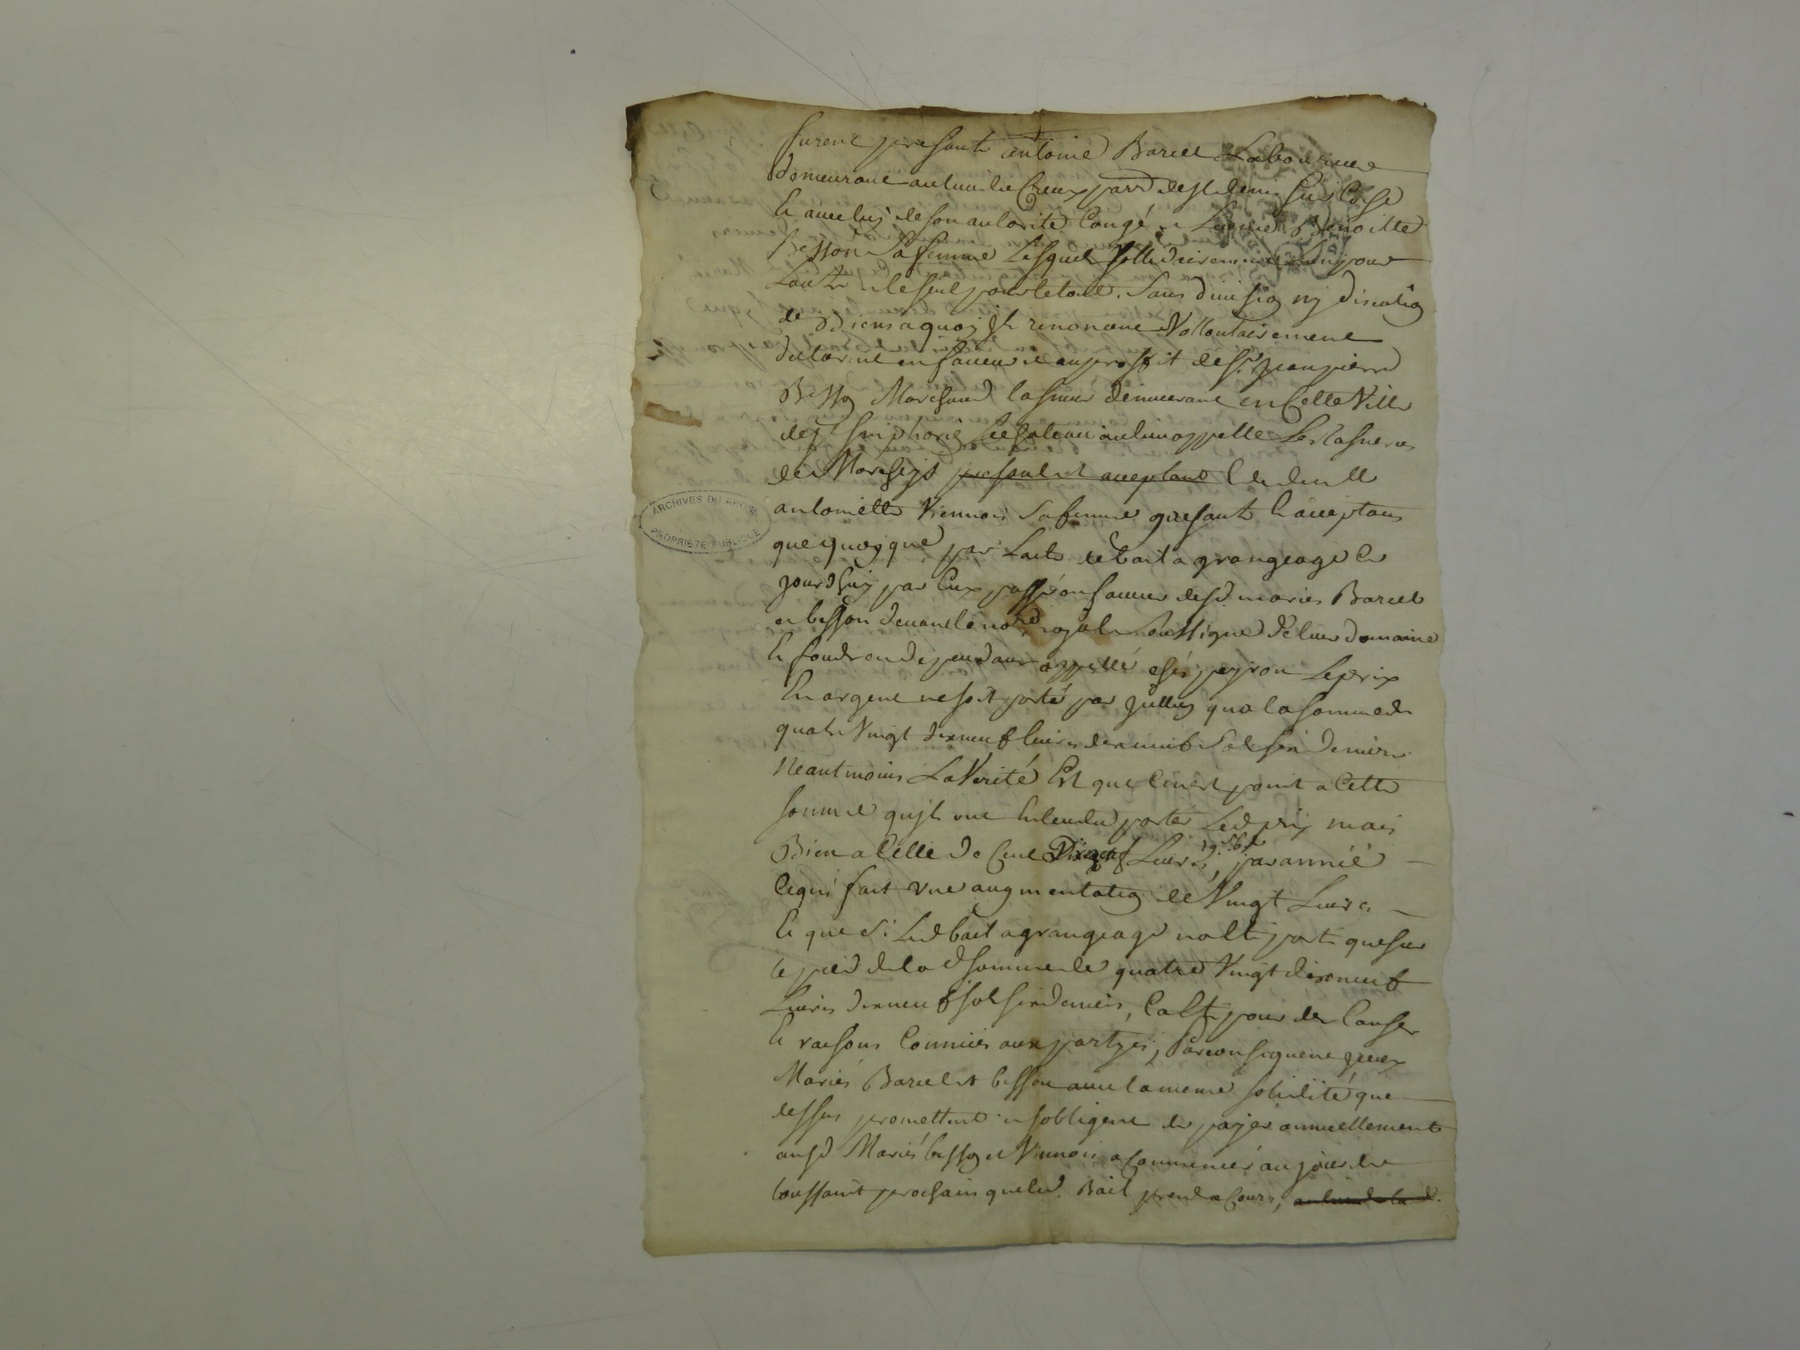 furent presents antoine Barret Laboureur
demeurant au lieu du Creux parr de st denis sur Coise
Et avec luy de son autorité Congé et Licence Benoitte
Besson sa femme Lesquels sollidairement Lun pour
Lautre et le seul pour le tout. sans division ny discution
de Biens a quoy ils renoncent Vollontairement
declarent en faveur et au proffit de sr. jean pierre
Besson Marchand demeurant en Cette Ville
de st simphorien le chateau au lieu appellé Les
de presents et acceptant Et de dlle
antoinette Viennois sa femme presents et acceptans
que quoyque par Lacte de bail a grangeage de ce
jourdhuy par Eux passé en faveur desd. mariés Barret
et besson devant le nore royal soussigné de leur domaine
et fonds en dependant appellé chés peyron Le prix
En argent ne soit porté par jcelluy qua la somme de
quatre Vingt dix neuf livres dix neuf sols six deniers
Neantmoins La Verité Est que ce n'est point a Cette
somme qujls ont Entendu porter Led prix mais
Bien a Celle de Cent Dix neuf Livres 19. s. 6 d. par année
Ce qui fait une augmentation de Vingt Livres
Et que si Led bail a grangeage na été porté que sur
le pied de lad somme de quatre Vingt dix neuf
Livres dix neuf sols six deniers, Ca été pour des Causes
Et raisons Connues aux partyes, Par consequent jceux
Mariés Barret et besson avec la meme solidité que
dessus promettent et sobligent de payer annuellement
ausd Mariés besson et Viennois a Commencer au jour de
toussaint prochain que led. Bail prend a Cours,
ARCHIVES DU RHÔNE
PROPRIÉTÉ PUBLIQUE